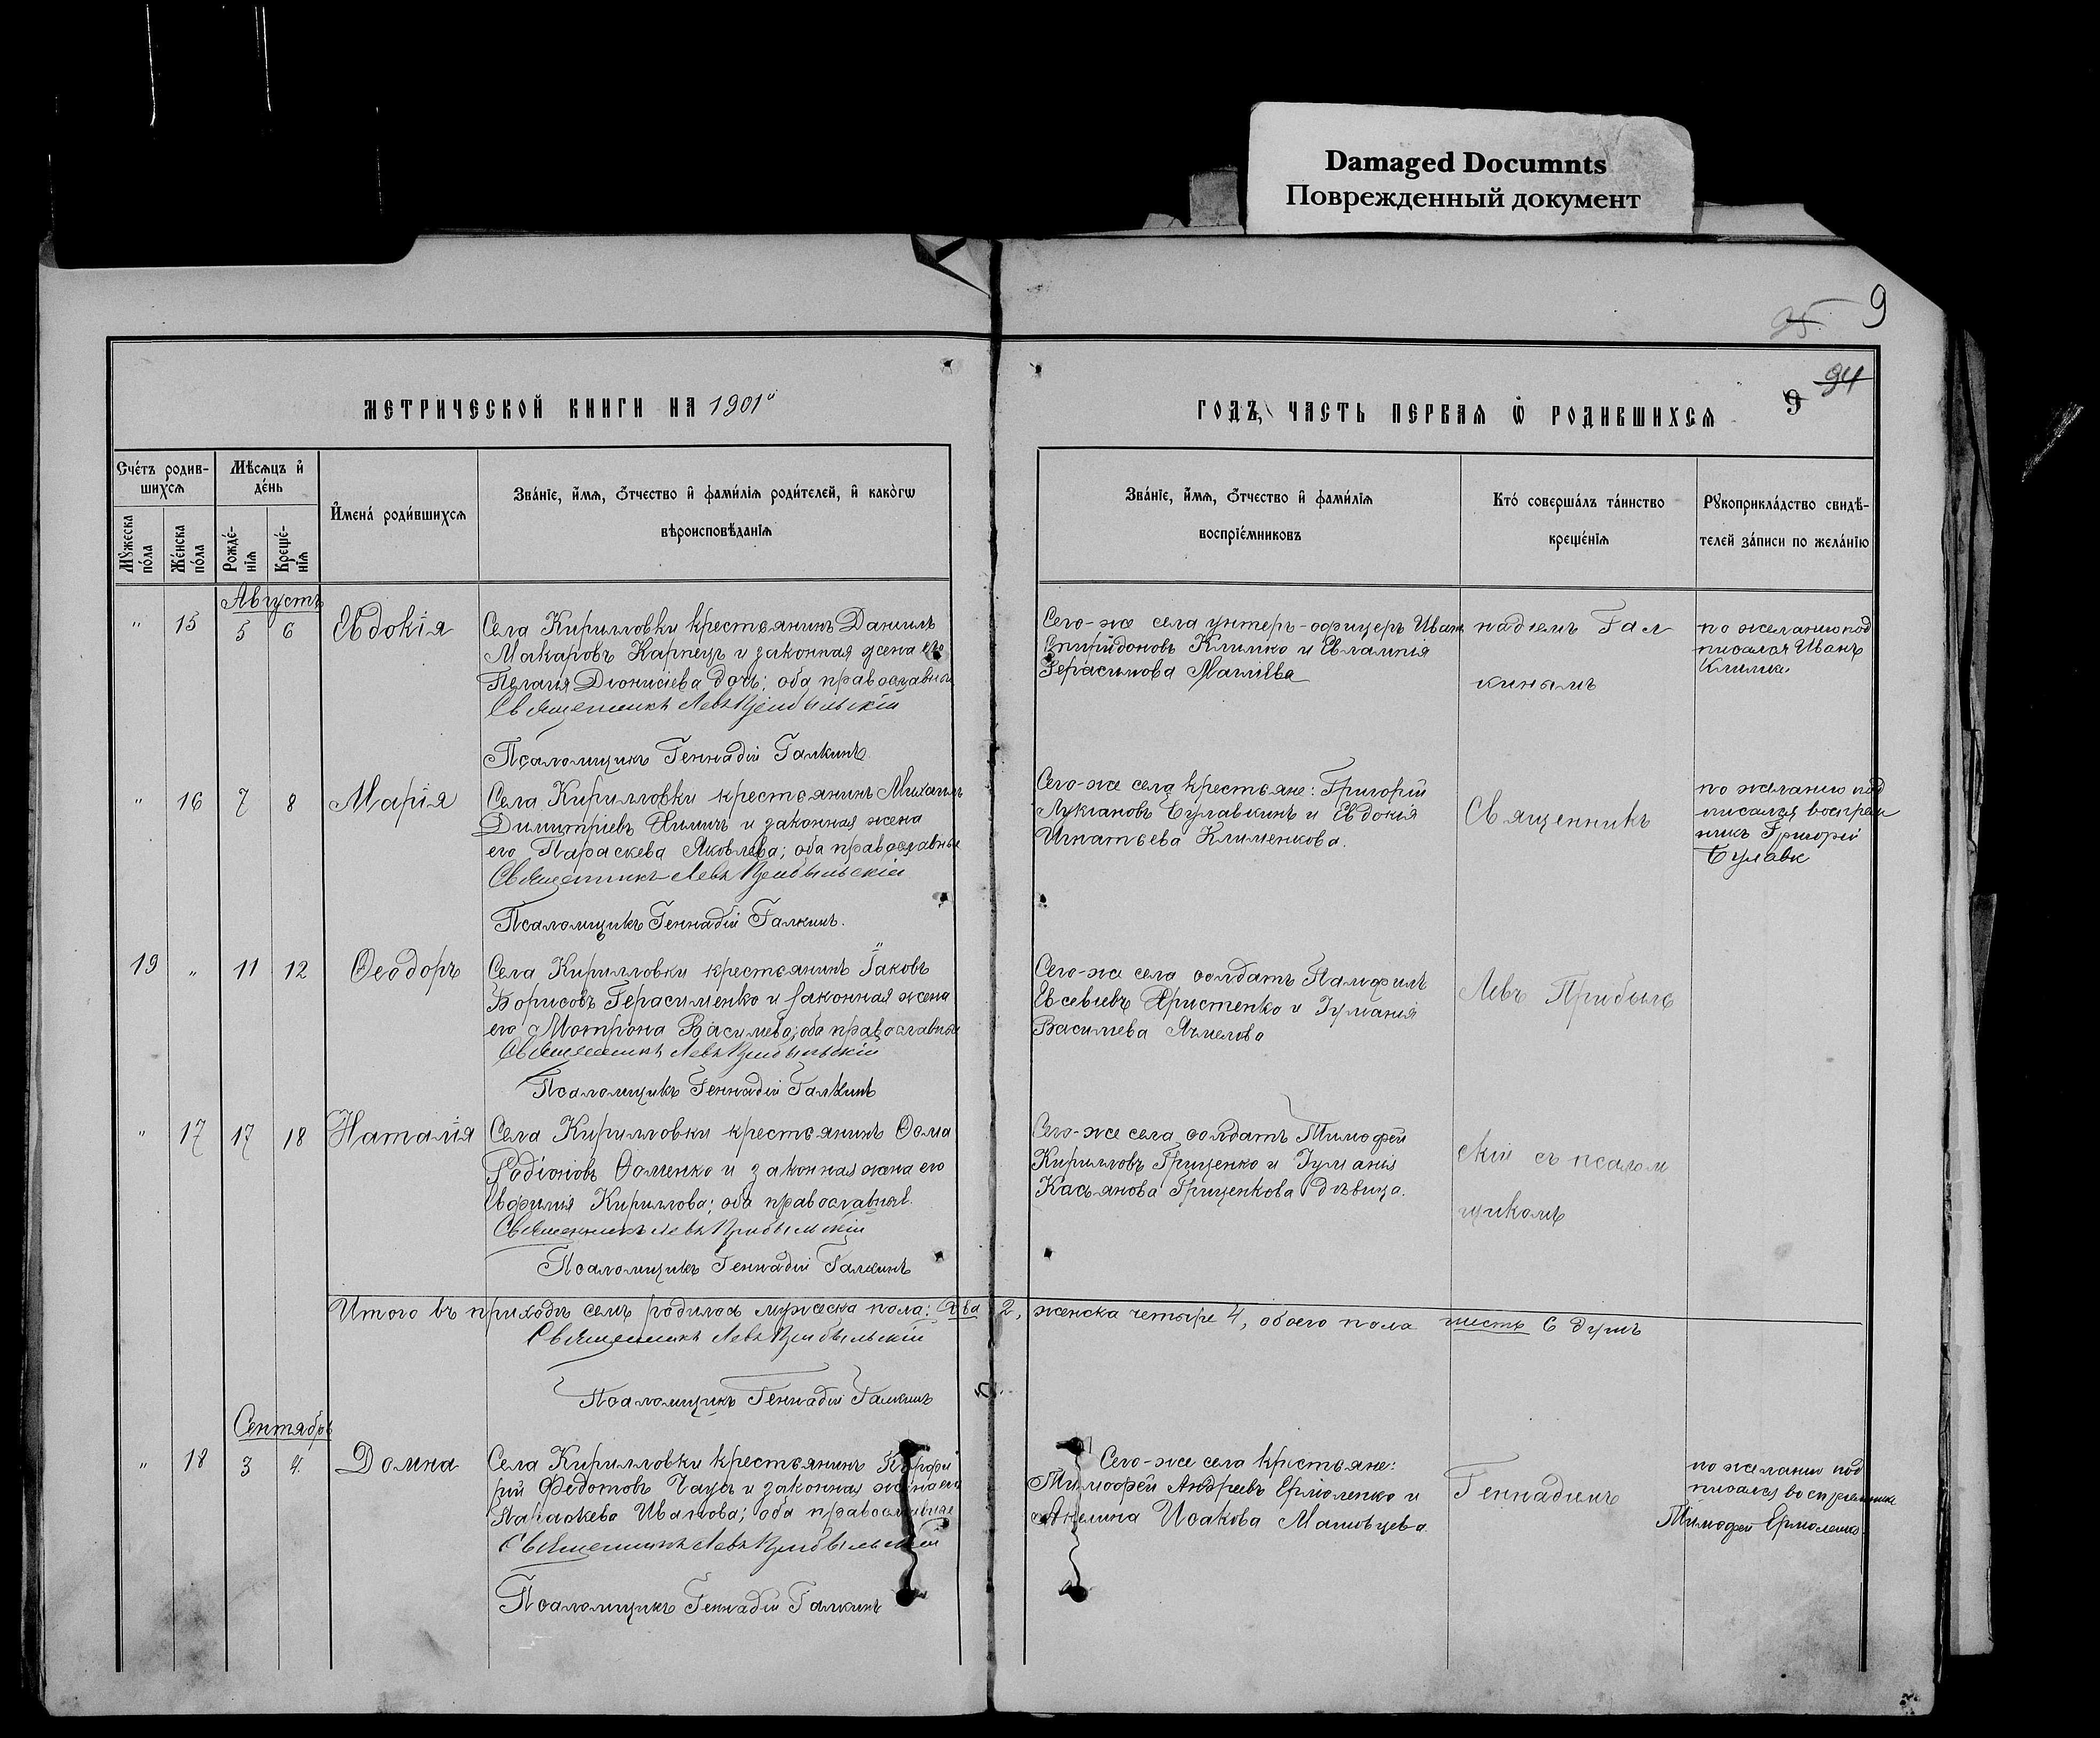 Damaged Documnts
Поврежденный документ
9
25
94
9
МЕТРИЧЕСКОЙ КНИГИ НА 1901й
ГОДЪ, ЧАСТЬ ПЕРВАЯ Ѡ РОДИВШИХСЯ
Счётъ родив-
шихся
Мѣсяцъ и
день
Имена родившихся
Званіе, имя, отчество и фамилія родителей, и какогѡ
вѣроисповѣданія
Мужеска
пола
Женска
пола
Рожде-
нія
Креще-
нія
Званіе, имя, отчество и фамилія
воспріемниковъ
Кто совершалъ таинство
крещенія
Рукоприкладство свидѣ-
телей записи по желанію
Августъ
" 15 5 6 Евдокія
Села Кирилловки крестьянинъ Даніилъ
Макаровъ Карпецъ и законная жена его
Пелагія Діонисіева дочь; оба православные
Священникъ Левъ Прибыльскій
Псаломщикъ Геннадій Галкинъ
Сего-же села унтеръ-офицеръ Иванъ
Спиридоновъ Климко и Евлампія
Герасимова
надіемъ Гал
кинымъ
по желанію под
писался Иванъ
Климко
" 16 7 8 Марія
Села Кирилловки крестьянинъ Михаилъ
Димитріевъ и законная жена
его Параскева Яковлева; оба православные
Священникъ Левъ Прибыльскій
Псаломщикъ Геннадій Галкинъ.
Сего-же села крестьяне: Григорій
Лукіановъ Булавкинъ и Евдокія
Игнатьева Клименкова.
Священникъ
по желанію под
писался воспріем
никъ Григорій
Булавк
19 " 11 12 Ѳеодоръ
Села Кирилловки крестьянинъ Іаковъ
Борисовъ Герасименко и законная жена
его Мотрона Василіева; оба православные
Священникъ Левъ Прибыльскій
Псаломщикъ Геннадій Галкинъ
Сего-же села солдатъ Памфилъ
Евсевіевъ Христенко и Іуліанія
Василіева
Левъ Прибыль
" 17 17 18 Наталія
Села Кирилловки крестьянинъ Ѳома
Родіоновъ Ѳоменко и законная жена его
Евфимія Кириллова; оба православные.
Священникъ Левъ Прибыльскій
Псаломщикъ Геннадій Галкинъ
Сего-же села солдатъ Тимофей
Кирилловъ Гриценко и Іуліанія
Касьянова Гриценкова дѣвица.
скій съ псалом
щикомъ
Итого въ приходѣ семъ родилось мужеска пола: два 2, женска четыре 4, обоего пола шесть 6 душъ
Священникъ Левъ Прибыльскій
Псаломщикъ Геннадій Галкинъ
Сентябрь
" 18 3 4 Домна
Села Кирилловки крестьянинъ Порфи
рій Федотовъ и законная жена его
Параскева Иванова; оба православные
Священникъ Левъ Прибыльскій
Псаломщикъ Геннадій Галкинъ
Сего-же села крестьяне:
Тимофей Андреевъ Ермоленко и
Акилина Исакова
Геннадіемъ
по желанію под
писался воспріемникъ
Тимофей Ермоленко